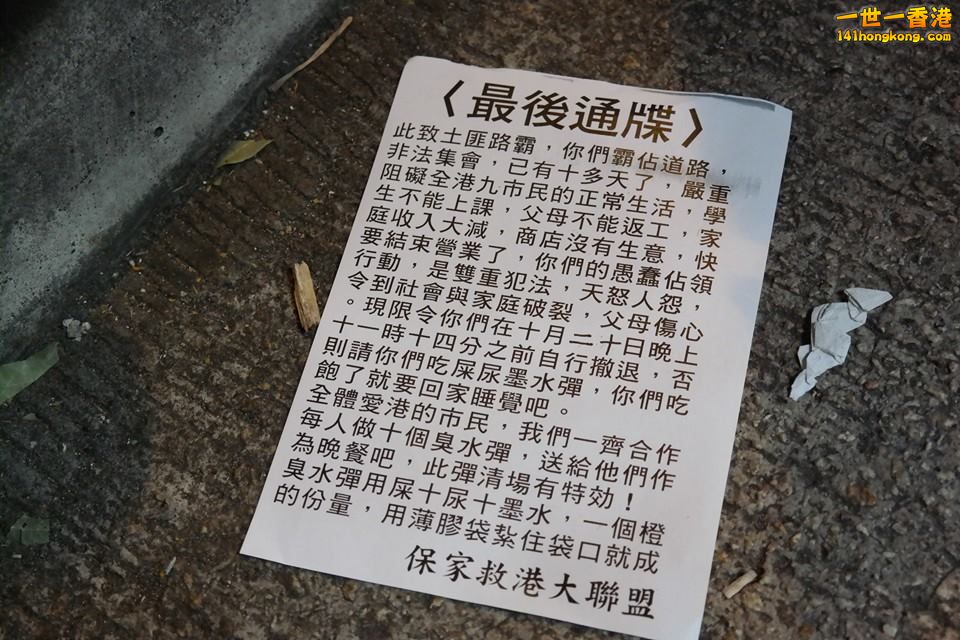 一世一香港
141hongkong.com
〈最後通牒〉
此致土匪路霸，你們霸佔道路，
非法集會，已有十多天了，嚴重
阻礙全港九市民的正常生活，學
生不能上課，父母不能返工，家
庭收入大減，商店沒有生意，快
要結束營業了，你們的愚蠢佔領
行動，是雙重犯法，天怒人怨，
令到社會與家庭破裂，父母傷心
。現限令你們在十月二十日晚上
十一時十四分之前自行撤退，否
則請你們吃屎尿墨水彈，你們吃
飽了就要回家睡覺吧。
全體愛港的市民，我們一齊合作
每人做十個臭水彈，送給他們作
為晚餐吧，此彈清場有特効！
臭水彈用屎十尿十墨水，一個橙
的份量，用薄膠袋紮住袋口就成
保家救港大聯盟